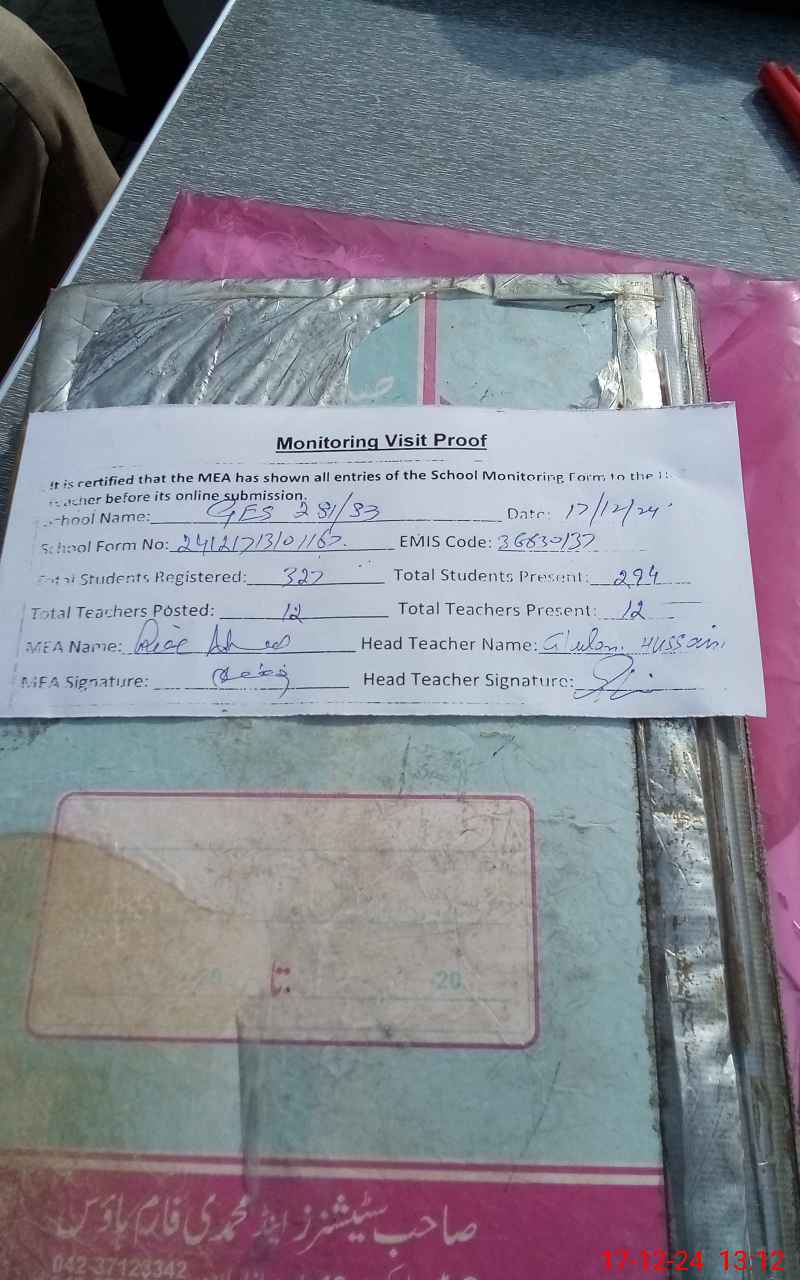 Monitoring Visit Proof
It is certified that the MEA has shown all entries of the School Monitoring Form to the
teacher before its online submission.
School Name: GES 281/83 Date: 17/12/24
School Form No: 24121713101167 EMIS Code: 36630137
Total Students Registered: 327 Total Students Present: 294
Total Teachers Posted: 12 Total Teachers Present: 12
MEA Name: Ahmed Head Teacher Name: Ghulam Hussain
MEA Signature: Head Teacher Signature:
20 تا: 20
صاحب سٹیشنرز اینڈ محمدی فارم ہاؤس
042-37123342
17-12-24 13:12